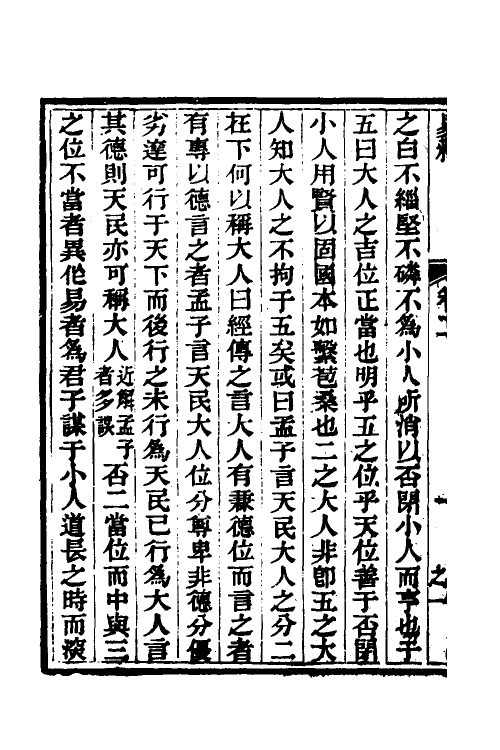 易釋
卷二
之白不緇堅不磷不為小人所消以否閉小人而亨也子
五曰大人之吉位正當也明乎五之位乎天位善于否閉
小人用賢以固國本如繫苞桑也二之大人非卽五之大
人知大人之不拘于五矣或曰孟子言天民大人之分二
在下何以稱大人曰經傳之言大人有兼德位而言之者
有專以德言之者孟子言天民大人位分尊卑非德分優
劣達可行于天下而後行之未行為天民已行為大人言
其德則天民亦可稱大人近解孟子者多誤否二當位而中與三
之位不當者異他易者為君子謀于小人道長之時而深